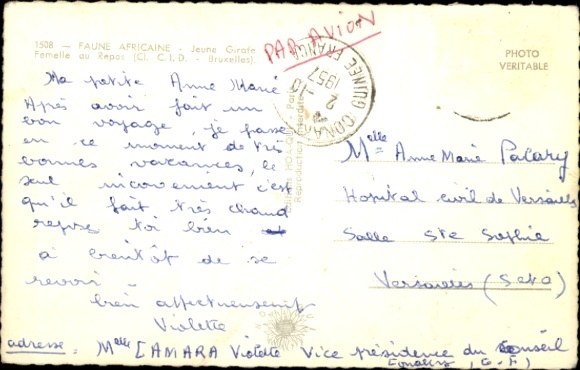 1508 — FAUNE AFRICAINE - Jeune Girafe
Femelle au Repos (Cl. C.I.D. - Bruxelles).
PAR AVION
PHOTO
VERITABLE
CONAKRY
GUINEE FRANÇAISE
2
1957
Ma petite Anne Marie
Après avoir fait un
bon voyage, je passe
en ce moment de très
bonnes vacances, le
seul inconvenient c'est
qu'il fait très chaud
repose toi bien
à bientôt de se
revoir.
bien affectueusement
Violette
Melle Anne Marie Palary
Hopital civil de Versailles
Salle Ste Sophie
Versailles (S et O)
Reproduction Interdite
adresse : Melle CAMARA Violette Vice présidence du Conseil
Conakry, (G.F)